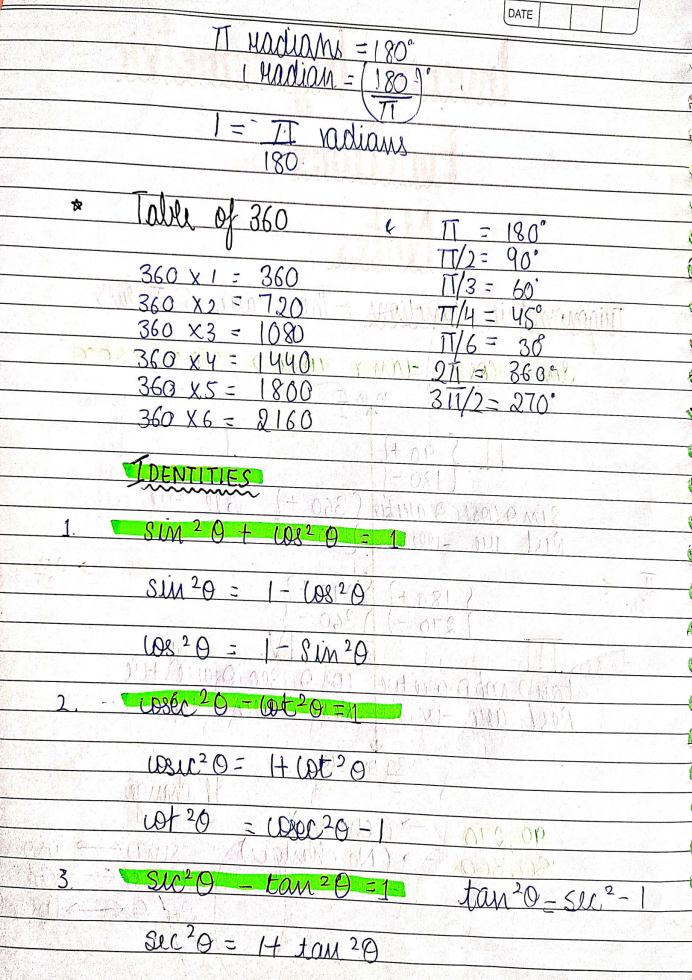 DATE
π radians = 180°
1 radian = (180/π)°
1 = π/180 radians
☆ Table of 360
360 x 1 = 360
360 x 2 = 720
360 x 3 = 1080
360 x 4 = 1440
360 x 5 = 1800
360 x 6 = 2160
π = 180°
π/2 = 90°
π/3 = 60°
π/4 = 45°
π/6 = 30°
2π = 360°
3π/2 = 270°
IDENTITIES
1. sin²θ + cos²θ = 1
sin²θ = 1 - cos²θ
cos²θ = 1 - sin²θ
2. cosec²θ - cot²θ = 1
cosec²θ = 1 + cot²θ
cot²θ = cosec²θ - 1
3 sec²θ - tan²θ = 1
tan²θ = sec² - 1
sec²θ = 1 + tan²θ